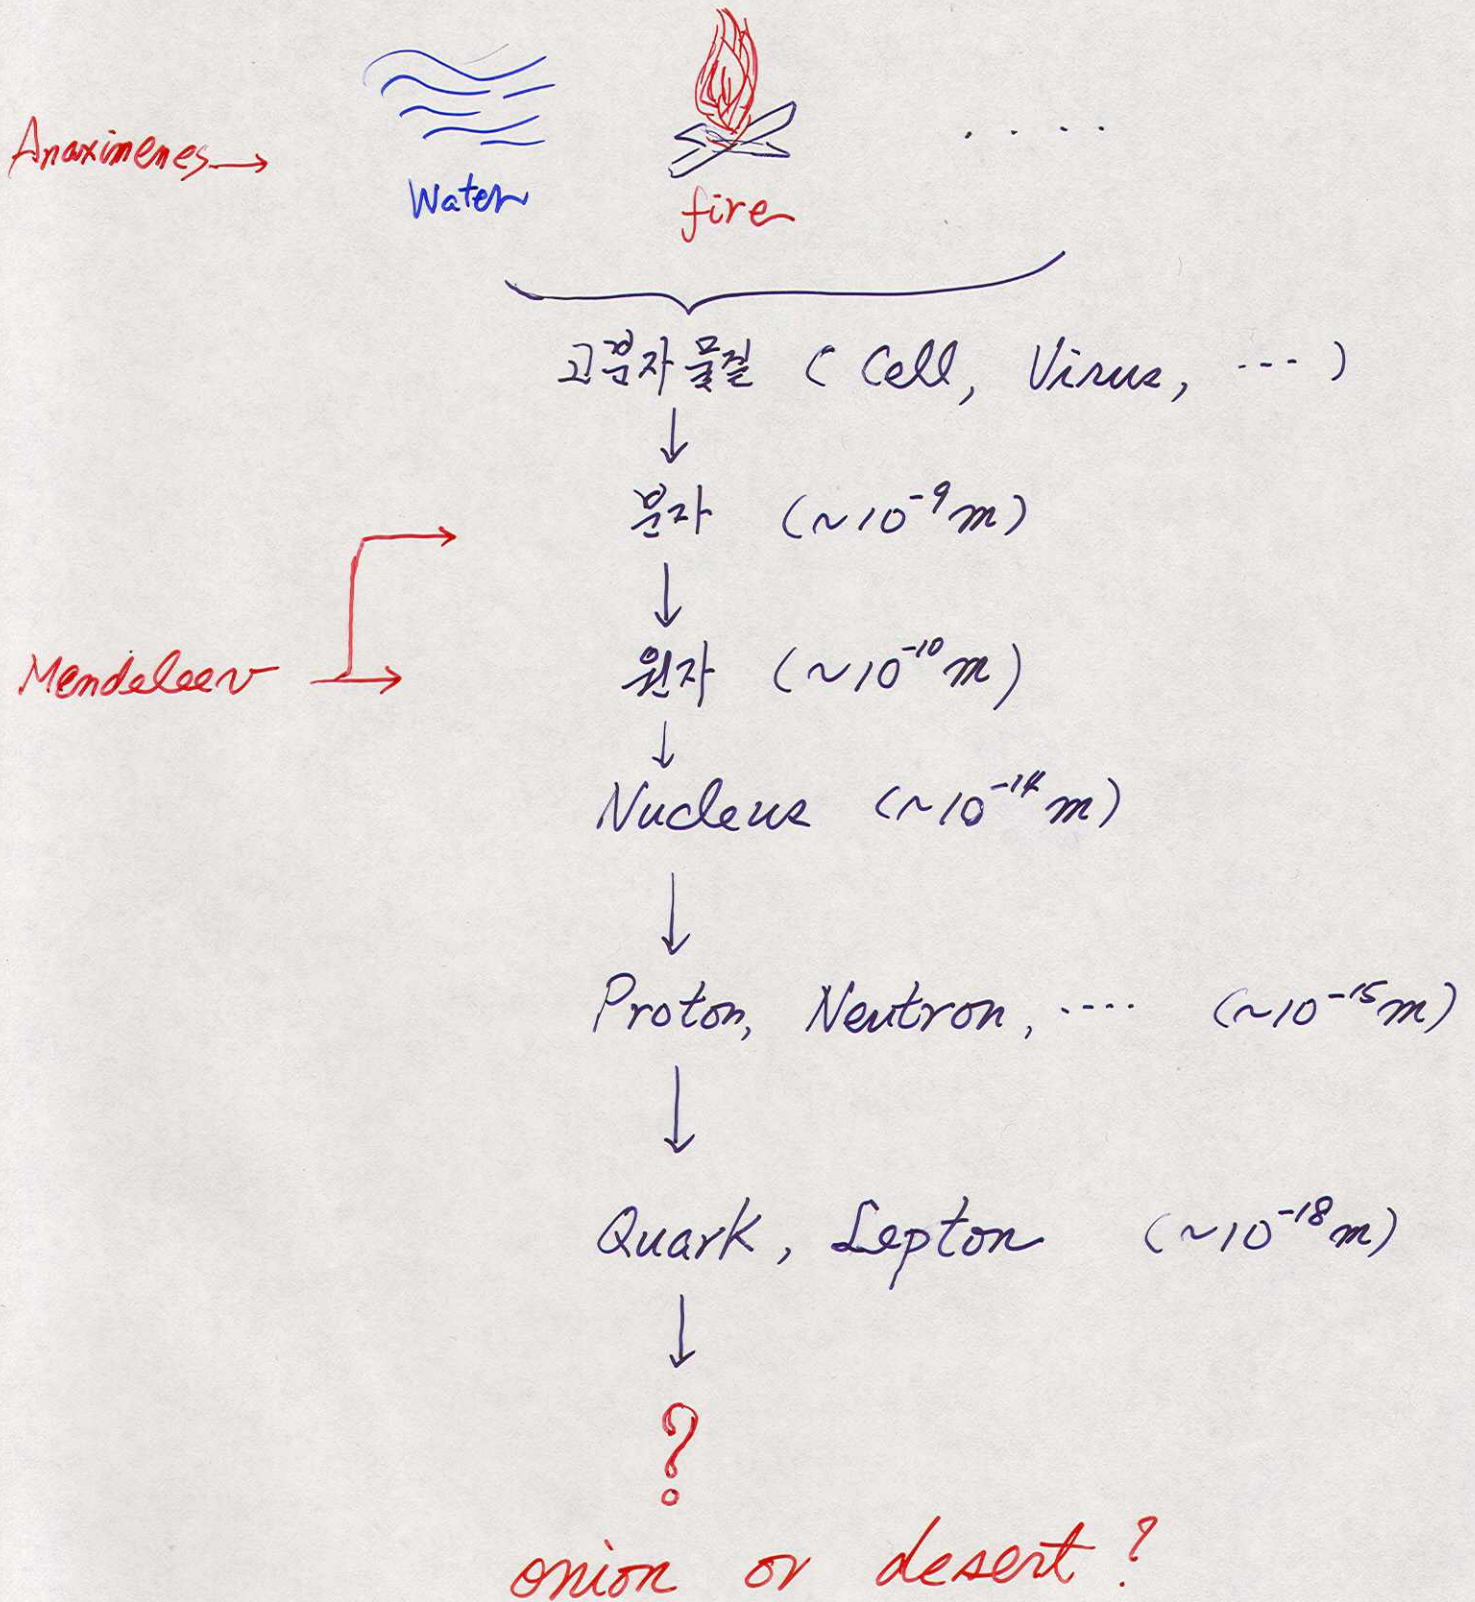 Anaximenes →
Water fire .....
고분자 물질 ( Cell, Virus, --- )
↓
분자 (~10⁻⁹m)
↓
Mendeleev → 원자 (~10⁻¹⁰m)
↓
Nucleus (~10⁻¹⁴m)
↓
Proton, Neutron, ···· (~10⁻¹⁵m)
↓
Quark, Lepton (~10⁻¹⁸m)
↓
?
onion or desert?